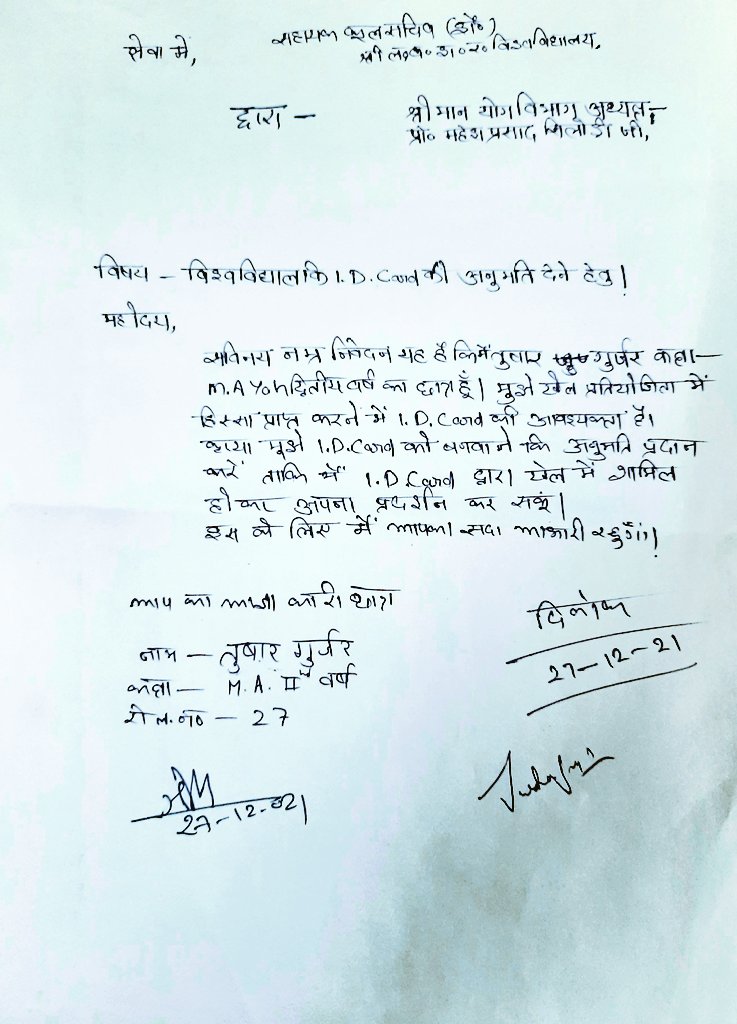 सेवा में,
सहायक कुलसचिव (डॉ०)
श्री ल०ब० शा० रा० विश्वविद्यालय,
द्वारा — श्रीमान योग विभाग अध्यक्ष,
प्रो० महेश प्रसाद सिलोडी जी,
विषय – विश्वविद्यालकि I.D. Card की अनुमति देने हेतु।
महोदय,
सविनय नम्र निवेदन यह है कि मैं तुषार गुर्जर कक्षा—
M.A Yoh द्वितीय वर्ष का छात्र हूँ। मुझे खेल प्रतियोजिता में
हिस्सा प्राप्त करने में I.D. Card की आवश्यकता है।
कृप्या मुझे I.D. Card को बनवाने कि अनुमति प्रदान
करें ताकि में I.D Card द्वारा खेल में शामिल
होका अपना प्रदर्शन कर सकूं।
इस के लिए में आपका सदा आभारी रहुँगां।
आप का आज्ञा कारी छात्र
नाम — तुषार गुर्जर
कक्षा — M.A. II वर्ष
रोल.न० — 27
दिनांक
27-12-21
27-12-2021